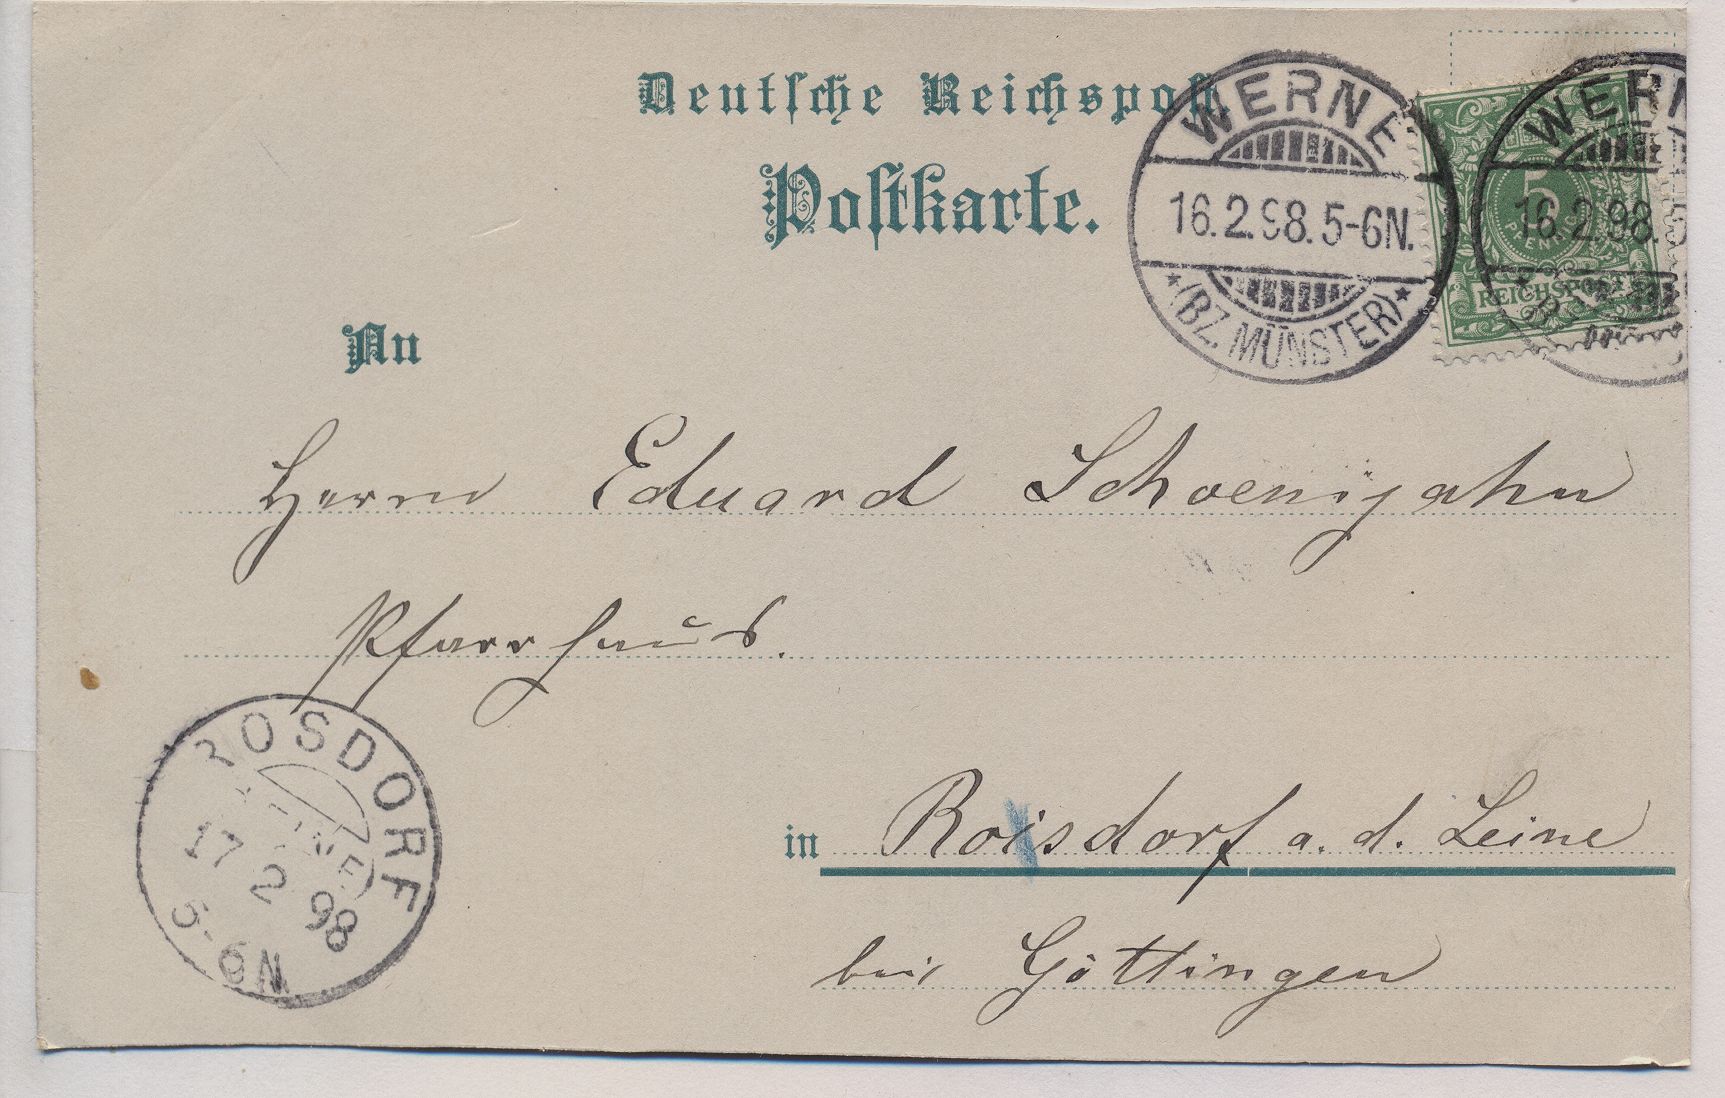 Deutsche Reichspost
Postkarte.
WERNE
16.2.98.5-6N.
*(BZ. MÜNSTER)*
5
PFENNIG
REICHSPOST
WERNE
16.2.98.5
An
Herrn Eduard Schoenijahn
Pfarrhaus.
in Roisdorf a. d. Leine
bei Göttingen
ROSDORF
(LEINE)
17 2 98
5-6N